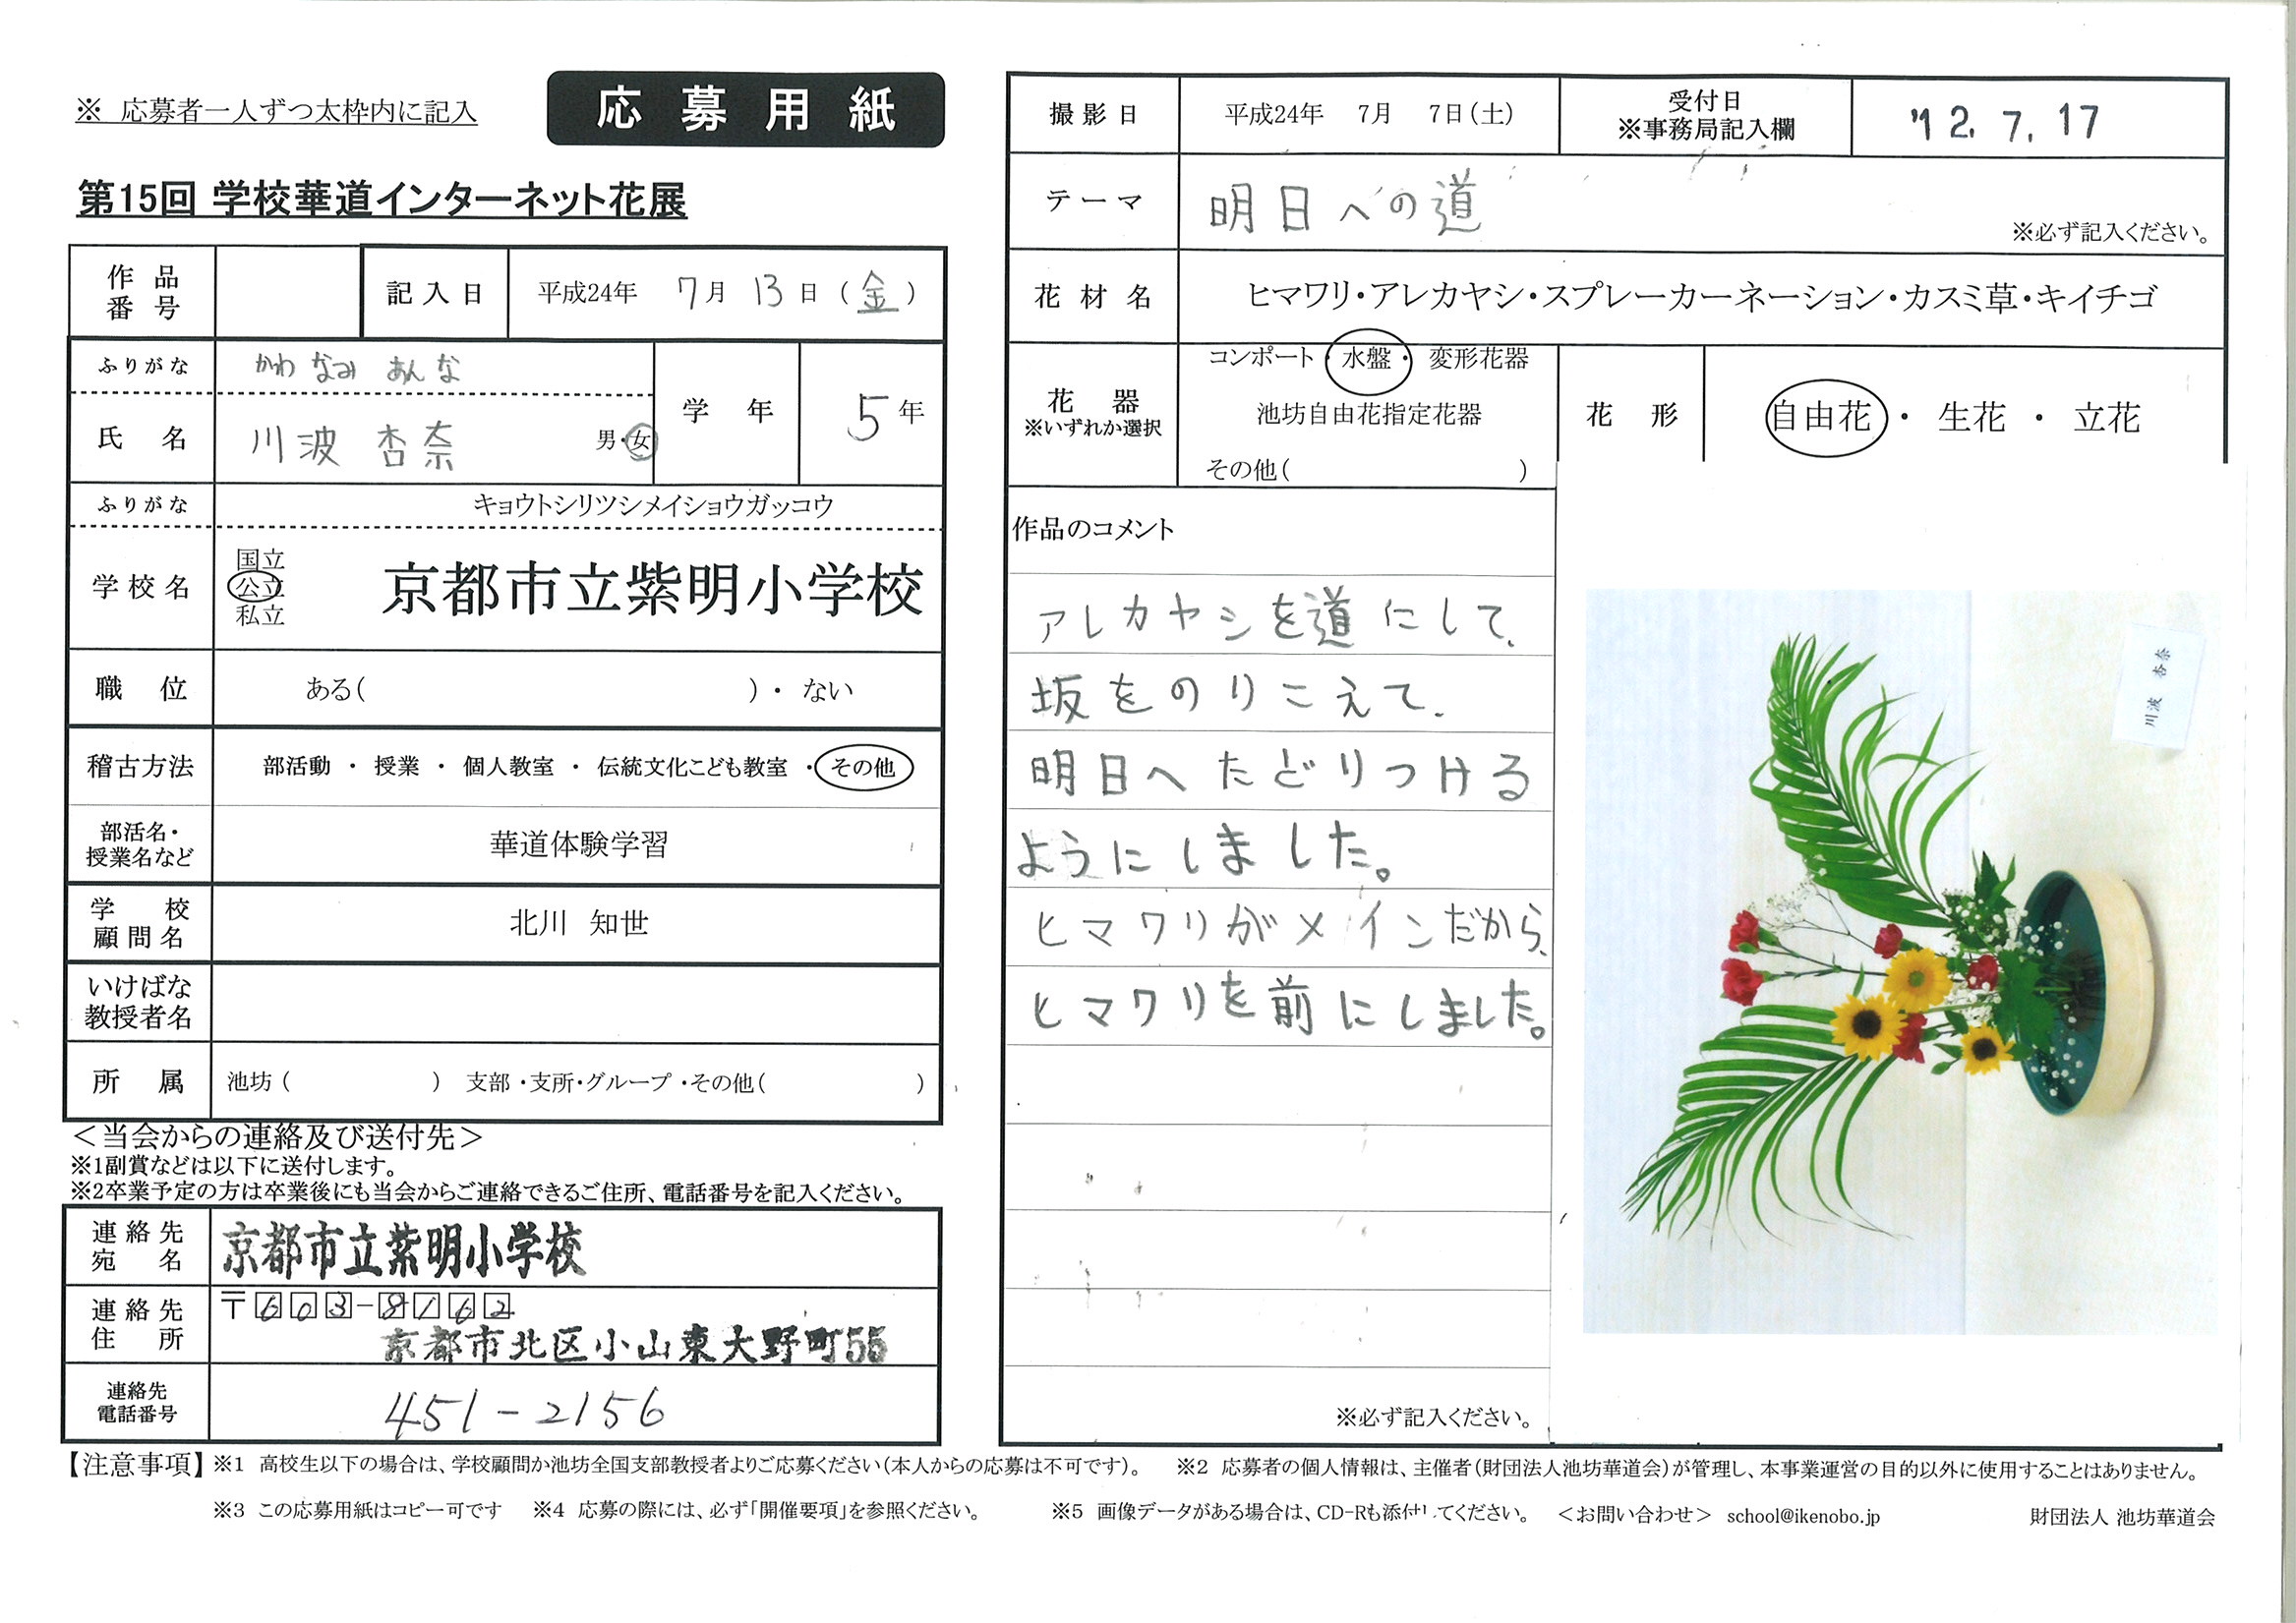 ※ 応募者一人ずつ太枠内に記入
応募用紙
第15回 学校華道インターネット花展
作品番号
記入日 平成24年 7月 13日(金)
ふりがな かわなみ あんな
氏名 川波 杏奈 男・女
学年 5年
ふりがな キョウトシリツシメイショウガッコウ
学校名 国立 公立 私立 京都市立紫明小学校
職位 ある( )・ ない
稽古方法 部活動 ・ 授業 ・ 個人教室 ・ 伝統文化こども教室 ・ その他
部活名・授業名など 華道体験学習
学校顧問名 北川 知世
いけばな教授者名
所属 池坊( ) 支部・支所・グループ・その他( )
＜当会からの連絡及び送付先＞
※1副賞などは以下に送付します。
※2卒業予定の方は卒業後にも当会からご連絡できるご住所、電話番号を記入ください。
連絡先宛名 京都市立紫明小学校
連絡先住所 〒603-8162
京都市北区小山東大野町55
連絡先電話番号 451-2156
撮影日 平成24年 7月 7日(土)
受付日 ※事務局記入欄 '12. 7. 17
テーマ 明日への道
※必ず記入ください。
花材名 ヒマワリ・アレカヤシ・スプレーカーネーション・カスミ草・キイチゴ
花器 ※いずれか選択
コンポート・水盤・変形花器
池坊自由花指定花器
その他( )
花形 自由花 ・ 生花 ・ 立花
作品のコメント
アレカヤシを道にして、
坂をのりこえて、
明日へたどりつける
ようにしました。
ヒマワリがメインだから、
ヒマワリを前にしました。
※必ず記入ください。
川波 杏奈
【注意事項】 ※1 高校生以下の場合は、学校顧問か池坊全国支部教授者よりご応募ください(本人からの応募は不可です)。 ※2 応募者の個人情報は、主催者(財団法人池坊華道会)が管理し、本事業運営の目的以外に使用することはありません。
※3 この応募用紙はコピー可です ※4 応募の際には、必ず「開催要項」を参照ください。 ※5 画像データがある場合は、CD-Rも添付してください。 ＜お問い合わせ＞ school@ikenobo.jp 財団法人 池坊華道会